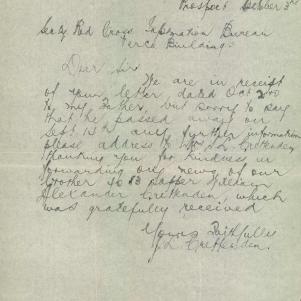 Prospect October 3rd
Secty Red Cross Information Bureau
Peirce Building
Dear Sir
We are in receipt
of your letter dated Oct 2nd
to my Father, but sorry to say
that he passed away on
Sept 13th any further information
please address to Mr J.L. Crittenden
Thanking you for kindness in
forwarding only news of our
brother 4083 Sapper William
Alexander Crittenden, which
was gratefully received
Yours Faithfully
J.L. Crittenden.